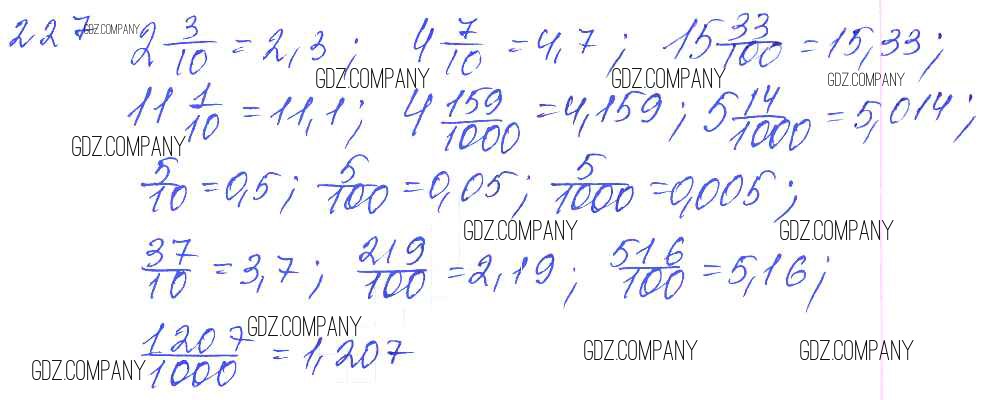 227 2 3/10 = 2,3; 4 7/10 = 4,7; 15 33/100 = 15,33;
11 1/10 = 11,1; 4 159/1000 = 4,159; 5 14/1000 = 5,014;
5/10 = 0,5; 5/100 = 0,05; 5/1000 = 0,005;
37/10 = 3,7; 219/100 = 2,19; 516/100 = 5,16;
1207/1000 = 1,207
GDZ.COMPANY
GDZ.COMPANY
GDZ.COMPANY
GDZ.COMPANY
GDZ.COMPANY
GDZ.COMPANY
GDZ.COMPANY
GDZ.COMPANY
GDZ.COMPANY
GDZ.COMPANY
GDZ.COMPANY